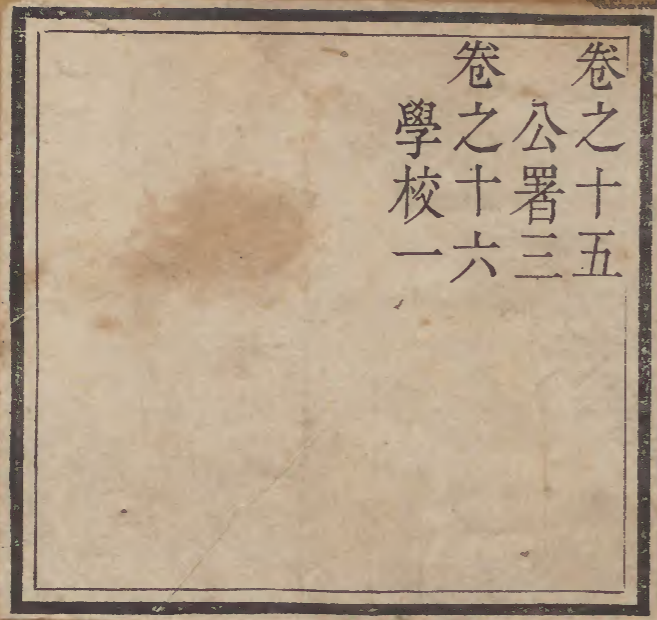 卷之十五
公署三
卷之十六
學校一